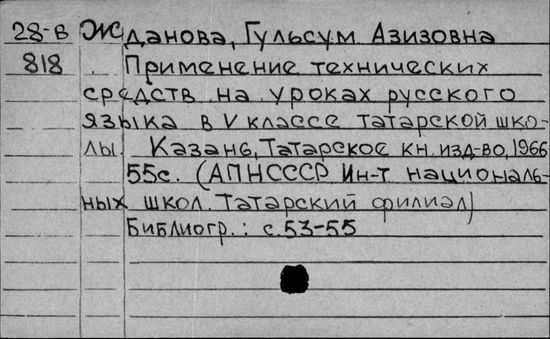 28-в Жданова, Гульсум Азизовна
818 Применение технических
средств на уроках русского
языка в V классе татарской шко-
лы. Казань, Татарское кн. изд-во, 1966
55с. (АПНСССР Ин-т националь-
ных школ. Татарский филиал)
Библиогр.: с.53-55